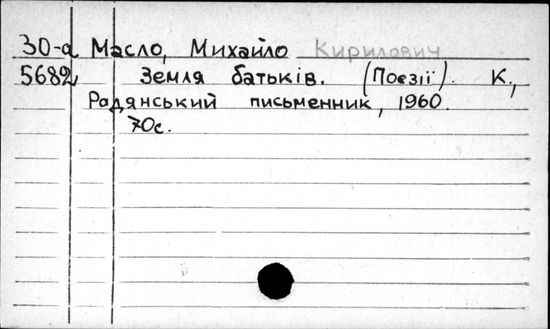 30-а Масло, Михайло Кирилович
5682 Земля батьків. (Поезії). К.,
Радянський письменник, 1960.
70с.